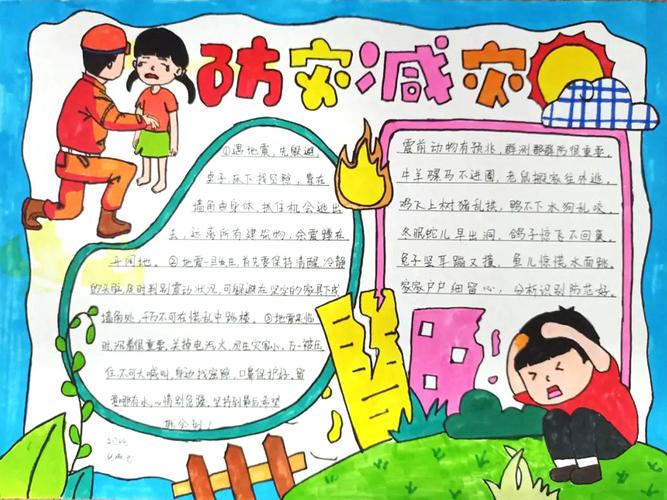 防灾减灾
①遇地震,先躲避,
桌子床下找空隙,靠在
墙角曲身体,抓住机会逃出
去,远离所有建筑物,余震蹲在
开阔地。②地震一旦发生,首先要保持清醒、冷静
的头脑,及时判别震动状况,可躲避在坚实的家具下或
墙角处,千万不可在慌乱中跳楼。③地震来临
时,沉着很重要,关掉电、汽、火,现在灾害小,万一被压
住不可大喊叫,身边找空隙,口鼻保护好。留
意哪有水,心情别急躁,坚持到最后希望
就会到!
震前动物有预兆,群测群防很重要。
牛羊骡马不进圈,老鼠搬家往外逃。
鸡飞上树猪乱拱,鸭不下水狗乱咬。
冬眠蛇儿早出洞,鸽子惊飞不回巢。
兔子竖耳蹦又撞,鱼儿惊慌水面跳。
家家户户细留心,分析识别防范好。